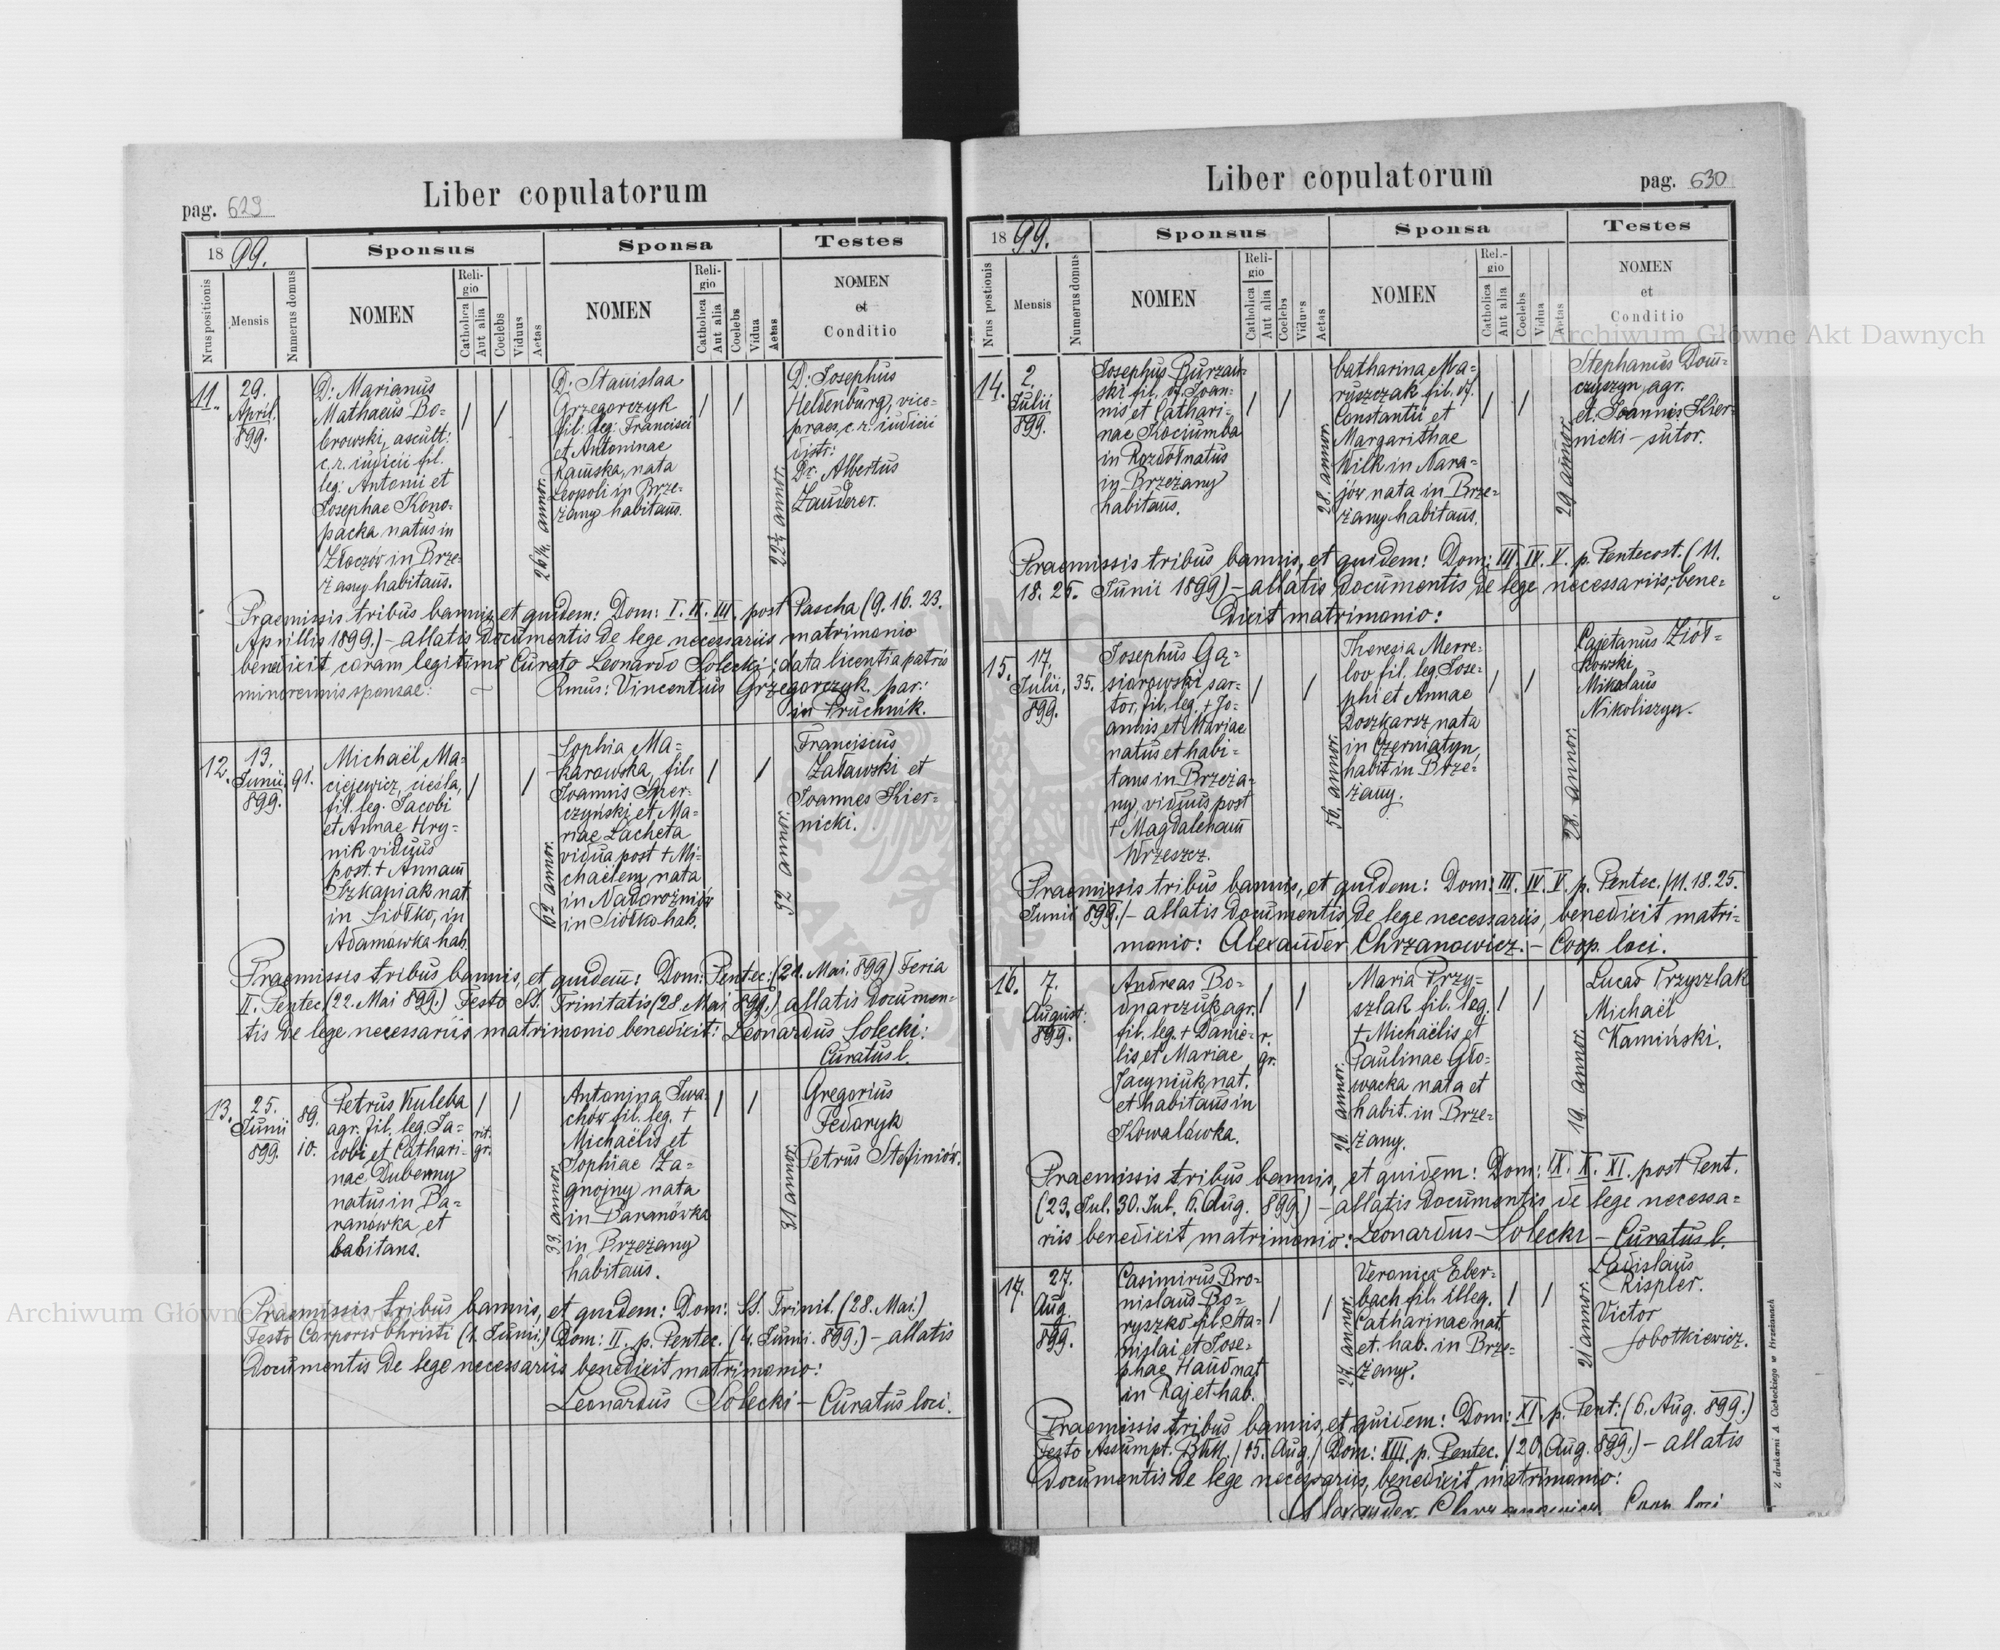 Liber copulatorum
pag. 629
18 99.
Sponsus
Sponsa
Testes
Nrus positionis
Mensis
Numerus domus
NOMEN
Religio
Catholica
Aut alia
Coelebs
Viduus
Aetas
NOMEN
Religio
Catholica
Aut alia
Coelebs
Vidua
Aetas
NOMEN
et
Conditio
11.
29.
April.
899.
D: Marianus
Mathaeus Bo-
browski, ascult:
c. r. iudicii fil.
leg: Antonii et
Josephae Kono-
packa natus in
Złoczów in Brze-
żany habitans.
26¼ annor.
D: Stanislaa
Grzegorczyk
fil: leg: Francisci
et Antoninae
Ramska, nata
Leopoli in Brze-
żany habitans.
22½ annor.
D: Josephus
Heldenburg, vice-
praes. c. r. iudicii
distr:
Dr. Albertus
Zauderer.
Praemissis tribus bannis, et quidem: Dom: I. II. III. post Pascha (9. 16. 23.
Aprillis 1899.) – allatis documentis de lege necessariis matrimonio
benedixit coram legitimo Curato Leonardo Solecki: data licentia patris
minorennis sponsae: Rmus: Vincentius Grzegorczyk. par.:
in Pruchnik.
12.
13.
Junii
899.
91.
Michaël Ma-
ciejewicz, ciesla,
fil. leg. Jacobi
et Annae Hry-
nik viduus
post. + Annam
Szkapiak nat.
in Siółko, in
Adamówka hab.
62 annor.
Sophia Ma-
karowska, fil.
Joannis Smer-
czyński, et Ma-
riae Lacheta
vidua post + Mi-
chaëlem, nata
in Nadorożniów
in Siółko hab.
52 annor.
Franciscus
Załawski et
Joannes Kier-
nicki.
Praemissis tribus bannis, et quidem: Dom: Pentec: (21. Mai. 899) Feria
II. Pentec. (22. Mai 899.) Festo SS. Trinitatis (28. Mai 899.) allatis documen-
tis de lege necessariis matrimonio benedixit: Leonardus Solecki:
Curatus l.
13.
25.
Junii
899.
89.
10.
Petrus Kuleba
agr. fil. leg. Ja-
cobi et Cathari-
nae Duberny
natus in Ba-
ranówka et
habitans.
rit.
gr.
33. annor.
Antonina Iwa-
chów fil. leg. +
Michaëlis et
Sophiae Za-
gnojny nata
in Baranówka
in Brzeżany
habitans.
31 annor.
Gregorius
Fedoryk
Petrus Stefiniów.
Praemissis tribus bannis, et quidem: Dom: SS. Trinit. (28. Mai.)
Festo Corporis Christi (1. Junii.) Dom: II. p. Pentec. (4. Junii. 899.) – allatis
documentis de lege necessariis benedixit matrimonio:
Leonardus Solecki – Curatus loci.
Liber copulatorum
pag. 630
18 99.
Sponsus
Sponsa
Testes
Nrus postionis
Mensis
Numerus domus
NOMEN
Religio
Catholica
Aut alia
Coelebs
Viduus
Aetas
NOMEN
Rel.-gio
Catholica
Aut alia
Coelebs
Vidua
Aetas
NOMEN
et
Conditio
14.
2.
Julii
899.
Josephus Burzań-
ski fil. Joan-
nis et Cathari-
nae Kociumba
in Rozdół natus
in Brzeżany
habitans.
28. annor.
Catharina Ma-
ryszczak fil.
Constantii et
Margarithae
Wilk in Nara-
jów nata in Brze-
żany habitans.
29 annor.
Stephanus Dom-
czyszyn, agr.
et Joannis Kier-
nicki – sutor.
Praemissis tribus bannis, et quidem: Dom: III. IV. V. p. Pentecost. (11.
18. 25. Junii 1899) – allatis documentis de lege necessariis, bene-
dixit matrimonio:
15.
17.
Julii,
899.
35.
Josephus Gą-
siorowski sar-
tor, fil. leg. + Jo-
annis, et Mariae
natus et habi-
tans in Brzeża-
ny, viduus post
+ Magdalenam
Wrzeszcz.
56 annor.
Theresia Merre-
lov fil. leg. Jose-
phi et Annae
Doszkarsz, nata
in Czerniatyn,
habit in Brze-
żany.
28. annor.
Cajetanus Ziół-
kowski
Mikolaus
Nikoliszyn.
Praemissis tribus bannis, et quidem: Dom: III. IV. V. p. Pentec. (11. 18. 25.
Junii 899.) – allatis documentis, de lege necessariis, benedixit matri-
monio: Alexander Chrzanowicz. – Coop. loci.
16.
7.
August.
899.
Andreas Bo-
dnarczuk agr.
fil. leg. + Danie-
lis et Mariae
Jacyniuk nat.
et habitans in
Kowalówka.
r.
gr.
26 annor.
Maria Przy-
szlak fil. leg.
+ Michaëlis et
Paulinae Gło-
wacka nata et
habit. in Brze-
żany.
19 annor.
Lucas Przyszlak
Michaël
Kamiński.
Praemissis tribus bannis, et quidem: Dom: IX. X. XI. post Pent.
(23. Jul. 30. Jul. 6. Aug. 899.) – allatis documentis de lege necessa-
riis benedixit matrimonio: Leonardus Solecki – Curatus l.
17.
27.
Aug.
899.
Casimirus Bro-
nislaus Bo-
ryszko fil. Sta-
nislai et Jose-
phae Haud nat
in Raj et hab.
27. annor.
Veronica Eber-
bach fil. illeg.
Catharinae nat
et. hab. in Brze-
żany.
21 annor.
Ladislaus
Rispler.
Victor
Sobotkiewicz.
Praemissis tribus bannis, et quidem: Dom: XI. p. Pent: (6. Aug. 899.)
Festo Assumpt. BMV. (15. Aug.) Dom: XIII. p. Pentec. (20. Aug. 899.) – allatis
documentis de lege necessariis, benedixit matrimonio:
Alexander Chrzanowicz Coop. loci
Z drukarni A. Cichockiego w Brzeżanach
Archiwum Główne Akt Dawnych
Archiwum Główne Akt Dawnych